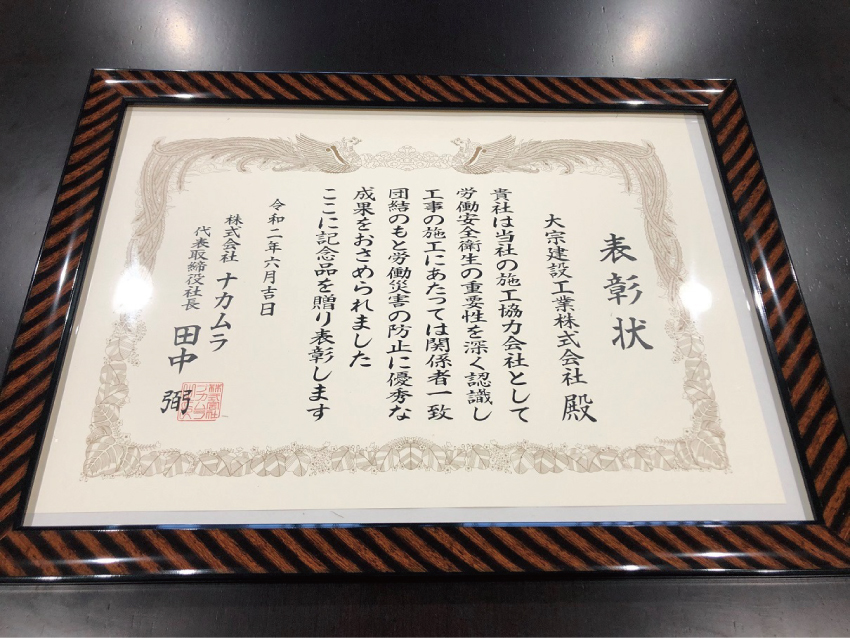 表彰状
大宗建設工業株式会社 殿
貴社は当社の施工協力会社として
労働安全衛生の重要性を深く認識し
工事の施工にあたっては関係者一致
団結のもと労働災害の防止に優秀な
成果をおさめられました
ここに記念品を贈り表彰します
令和二年六月吉日
株式会社 ナカムラ
代表取締役社長 田中 弼